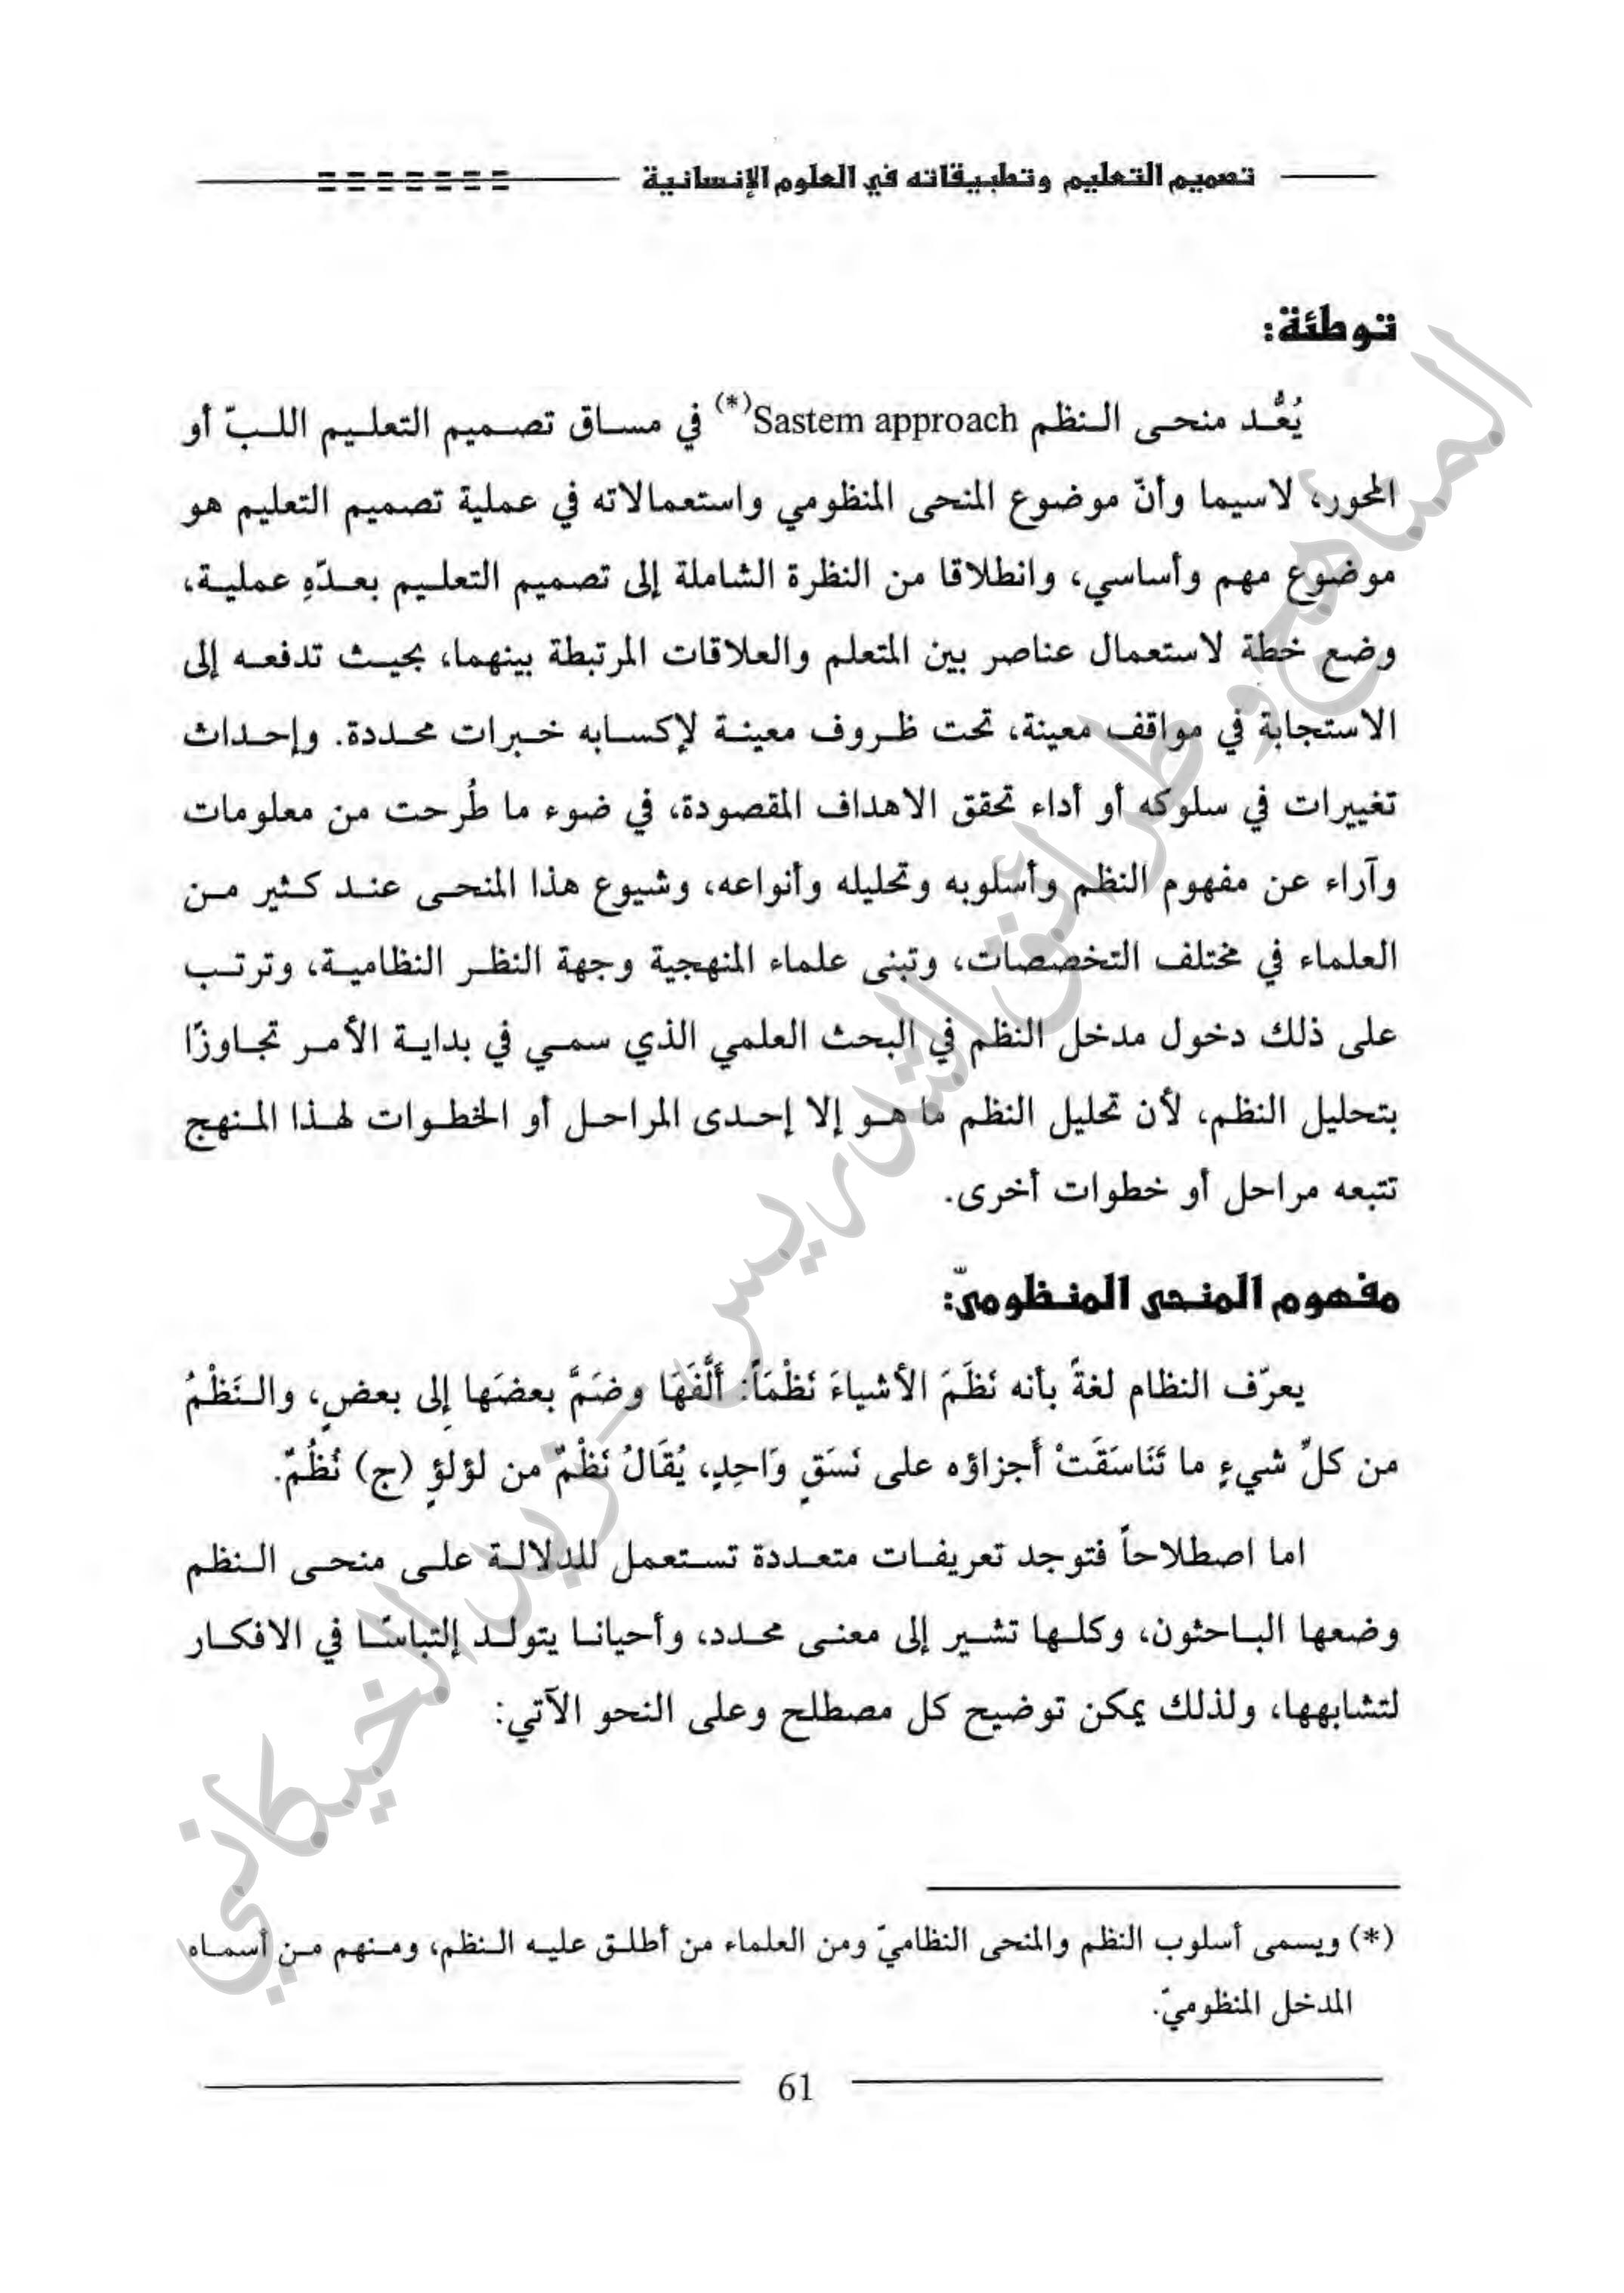 تصميم التعليم وتطبيقاته في العلوم الإنسانية
توطئة:
يُعُّد منحى النظم Sastem approach(*) في مساق تصميم التعليم اللبّ أو
المحور، لاسيما وأنّ موضوع المنحى المنظومي واستعمالاته في عملية تصميم التعليم هو
موضوع مهم وأساسي، وانطلاقا من النظرة الشاملة إلى تصميم التعليم بعدّهِ عملية،
وضع خطة لاستعمال عناصر بين المتعلم والعلاقات المرتبطة بينهما، بحيث تدفعه إلى
الاستجابة في مواقف معينة، تحت ظروف معينة لإكسابه خبرات محددة. وإحداث
تغييرات في سلوكه أو أداء تحقق الاهداف المقصودة، في ضوء ما طُرحت من معلومات
وآراء عن مفهوم النظم وأسلوبه وتحليله وأنواعه، وشيوع هذا المنحى عند كثير من
العلماء في مختلف التخصصات، وتبنى علماء المنهجية وجهة النظر النظامية، وترتب
على ذلك دخول مدخل النظم في البحث العلمي الذي سمي في بداية الأمر تجاوزًا
بتحليل النظم، لأن تحليل النظم ما هو إلا إحدى المراحل أو الخطوات لهذا المنهج
تتبعه مراحل أو خطوات أخرى.
مفهوم المنحى المنظوميّ:
يعرّف النظام لغةً بأنه نَظَمَ الأشياءَ نَظْمَاً: أَلَّفَهَا وضَمَّ بعضَها إِلى بعضٍ، والنَظْمُ
من كلِّ شيءٍ ما تَنَاسَقَتْ أَجزاؤه على نَسَقٍ وَاحِدٍ، يُقَالُ نَظْمٌ من لؤلؤٍ (ج) نُظُمٌ.
اما اصطلاحاً فتوجد تعريفات متعددة تستعمل للدلالة على منحى النظم
وضعها الباحثون، وكلها تشير إلى معنى محدد، وأحيانا يتولد إلتباسًا في الافكار
لتشابهها، ولذلك يمكن توضيح كل مصطلح وعلى النحو الآتي:
(*) ويسمى أسلوب النظم والمنحى النظاميّ ومن العلماء من أطلق عليه النظم، ومنهم من أسماه
المدخل المنظوميّ.
61
المناهج وطرائق التدريس - زيد الخيكاني